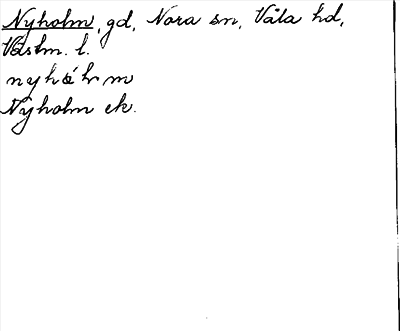 Nyholm, gd, Nora sn, Våla hd,
Västm. l.
Nyholm ek.